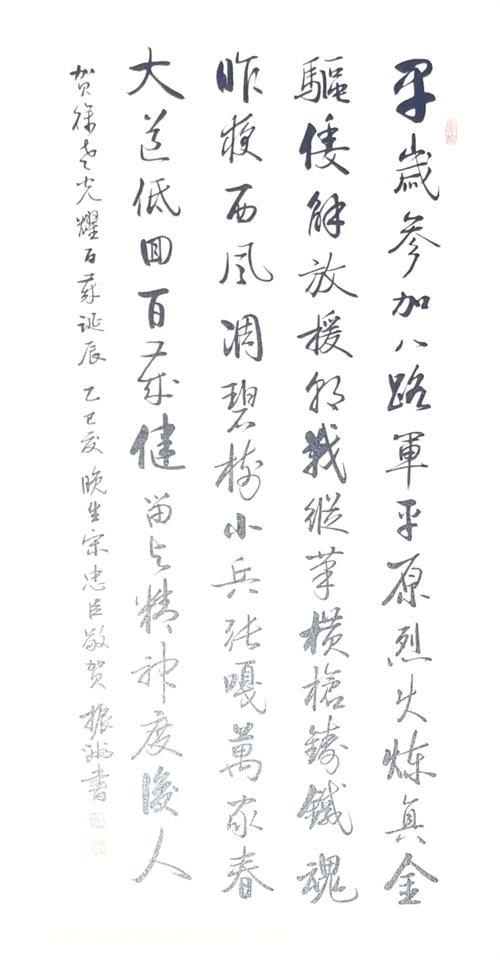 早歲參加八路軍平原烈火煉真金
驅倭解放援朝戰縱筆橫槍鑄鐵魂
昨夜西風凋碧樹小兵張嘎萬家春
大道低回百歲健留與精神度後人
賀徐老光耀百歲誕辰 乙巳夏 晚生宋忠臣敬賀 振洲書